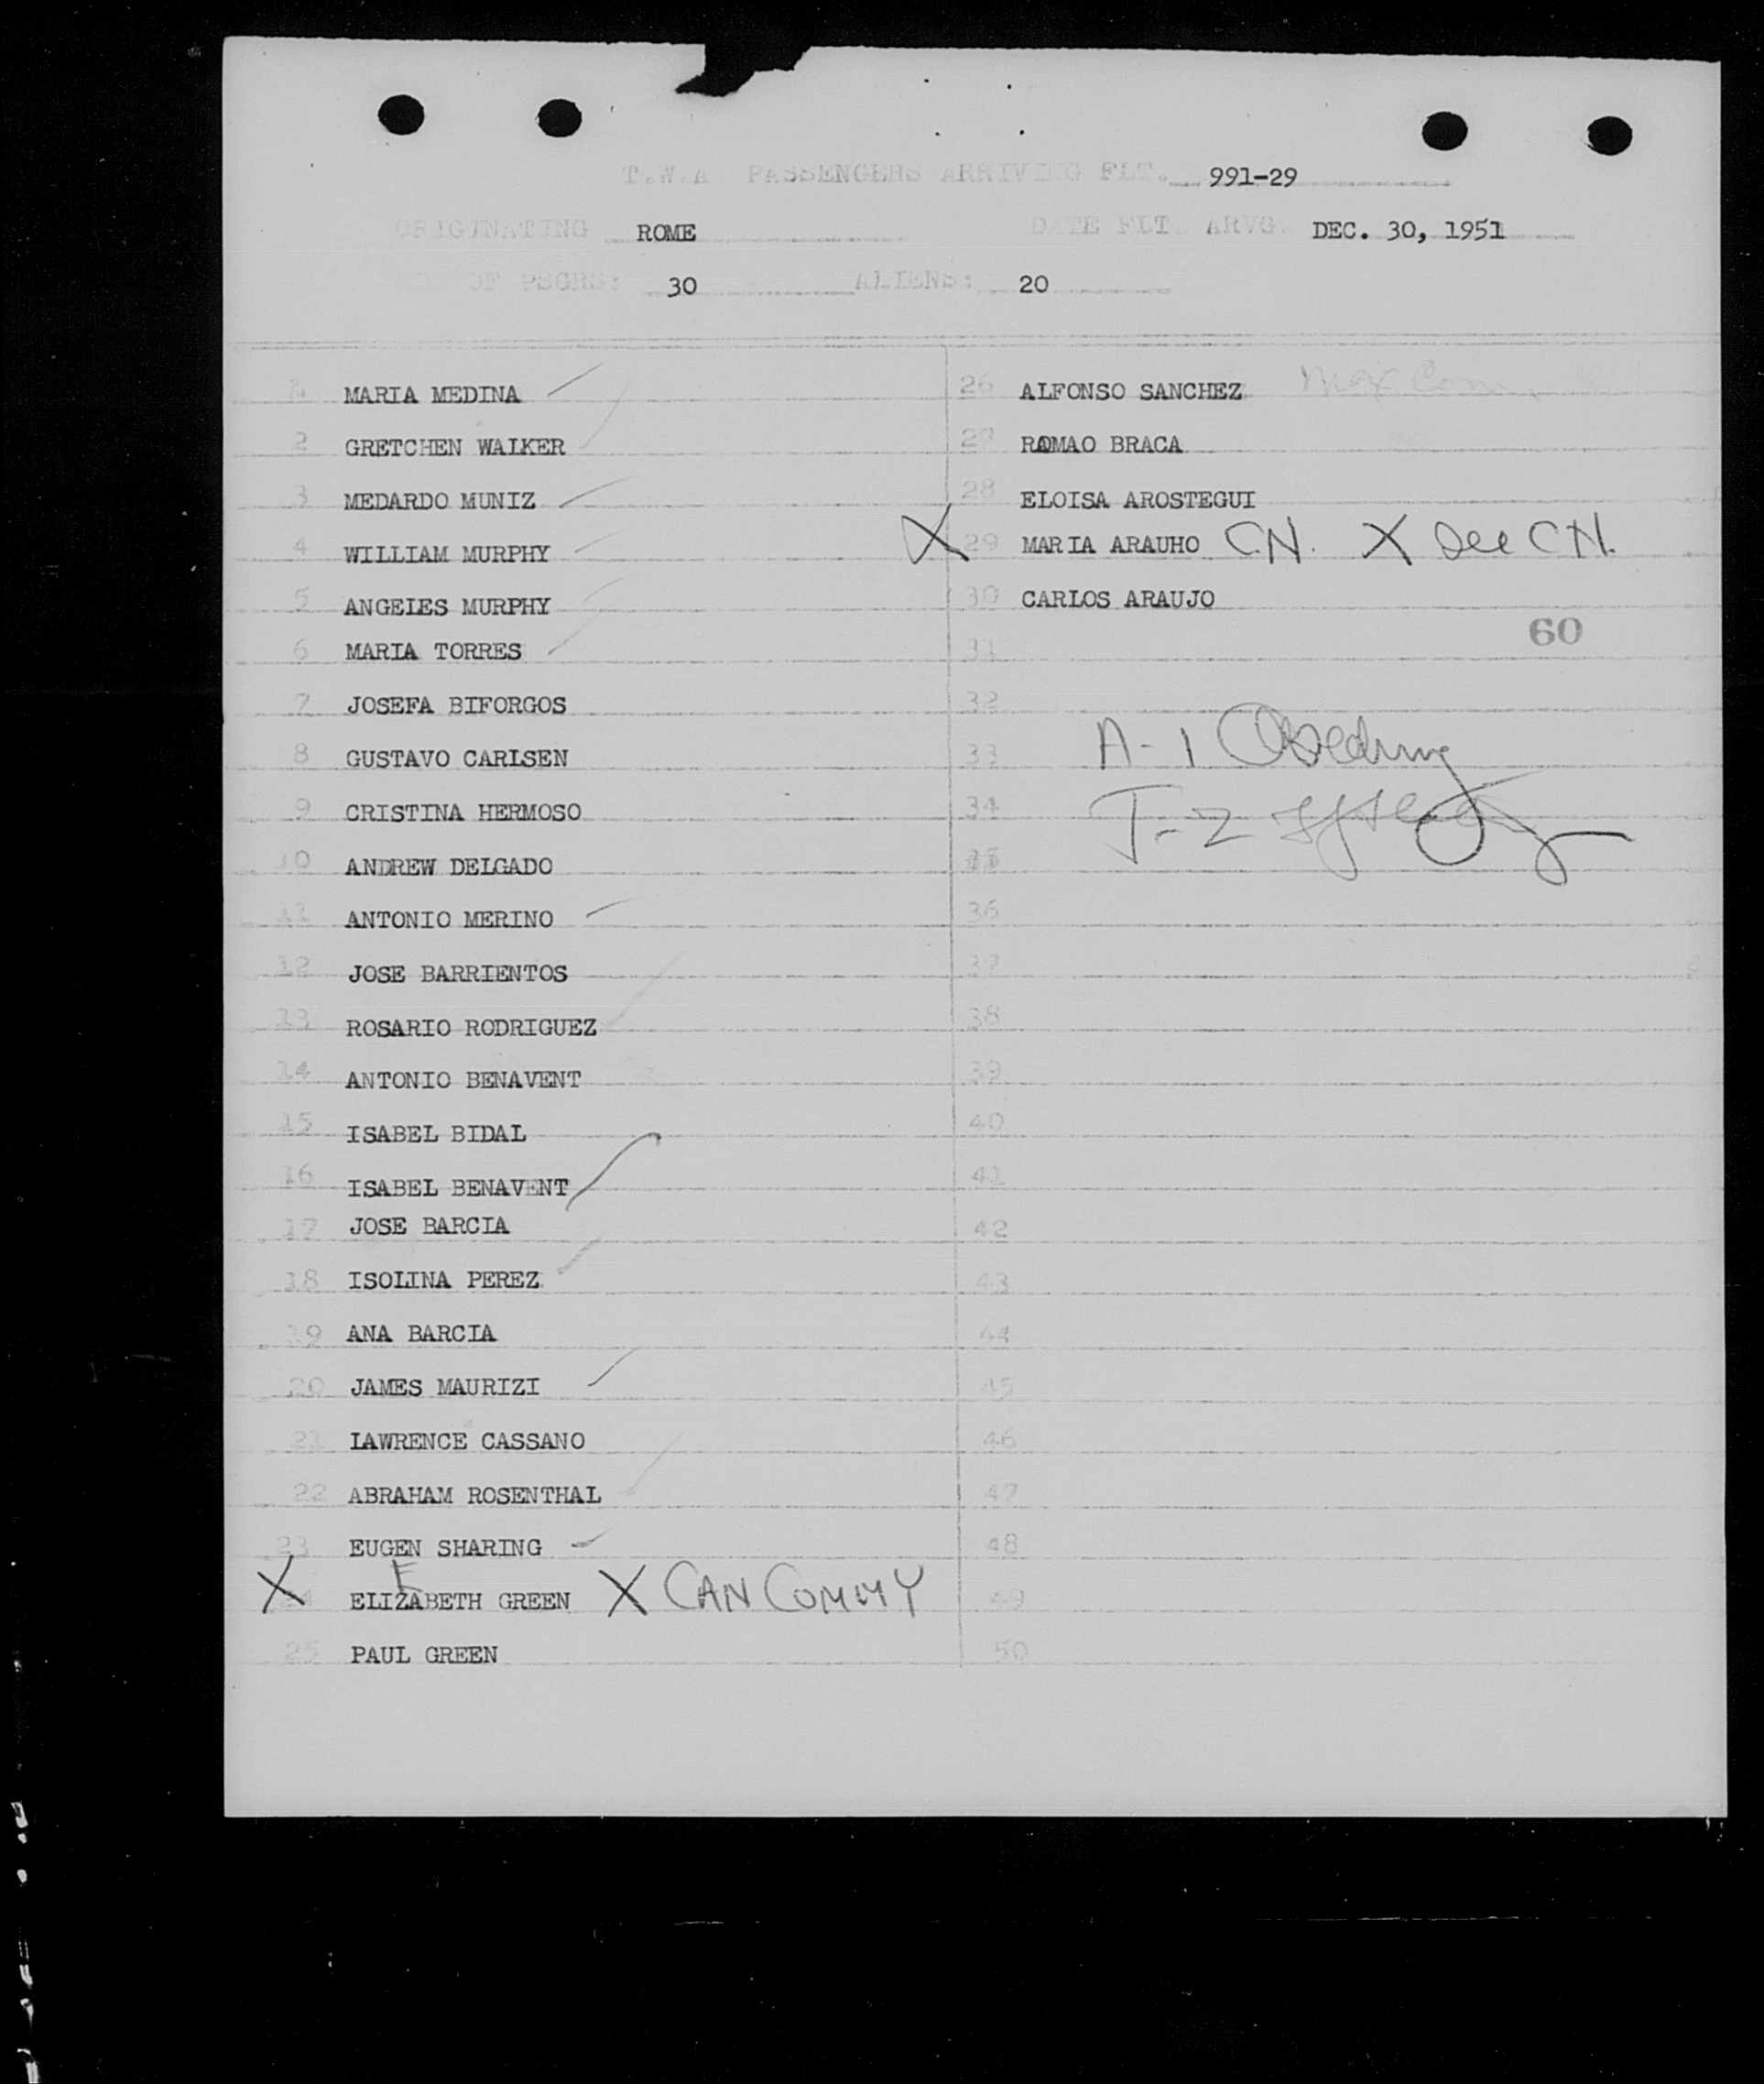 T.W.A. PASSENGERS ARRIVING FLT. 991-29
ORIGINATING ROME DATE FLT. ARVG. DEC. 30, 1951
OF PSGRS: 30 ALIENS: 20
1 MARIA MEDINA
2 GRETCHEN WALKER
3 MEDARDO MUNIZ
4 WILLIAM MURPHY
5 ANGELES MURPHY
6 MARIA TORRES
7 JOSEFA BIFORGOS
8 GUSTAVO CARLSEN
9 CRISTINA HERMOSO
10 ANDREW DELGADO
11 ANTONIO MERINO
12 JOSE BARRIENTOS
13 ROSARIO RODRIGUEZ
14 ANTONIO BENAVENT
15 ISABEL BIDAL
16 ISABEL BENAVENT
17 JOSE BARCIA
18 ISOLINA PEREZ
19 ANA BARCIA
20 JAMES MAURIZI
21 LAWRENCE CASSANO
22 ABRAHAM ROSENTHAL
23 EUGEN SHARING
X 24 ELIZABETH GREEN X CAN COMMY
E
25 PAUL GREEN
26 ALFONSO SANCHEZ
27 ROMAO BRACA
28 ELOISA AROSTEGUI
X 29 MARIA ARAUHO C.N. X See CN.
30 CARLOS ARAUJO
60
31
32
33 A-1
34 T-2
35
36
37
38
39
40
41
42
43
44
45
46
47
48
49
50